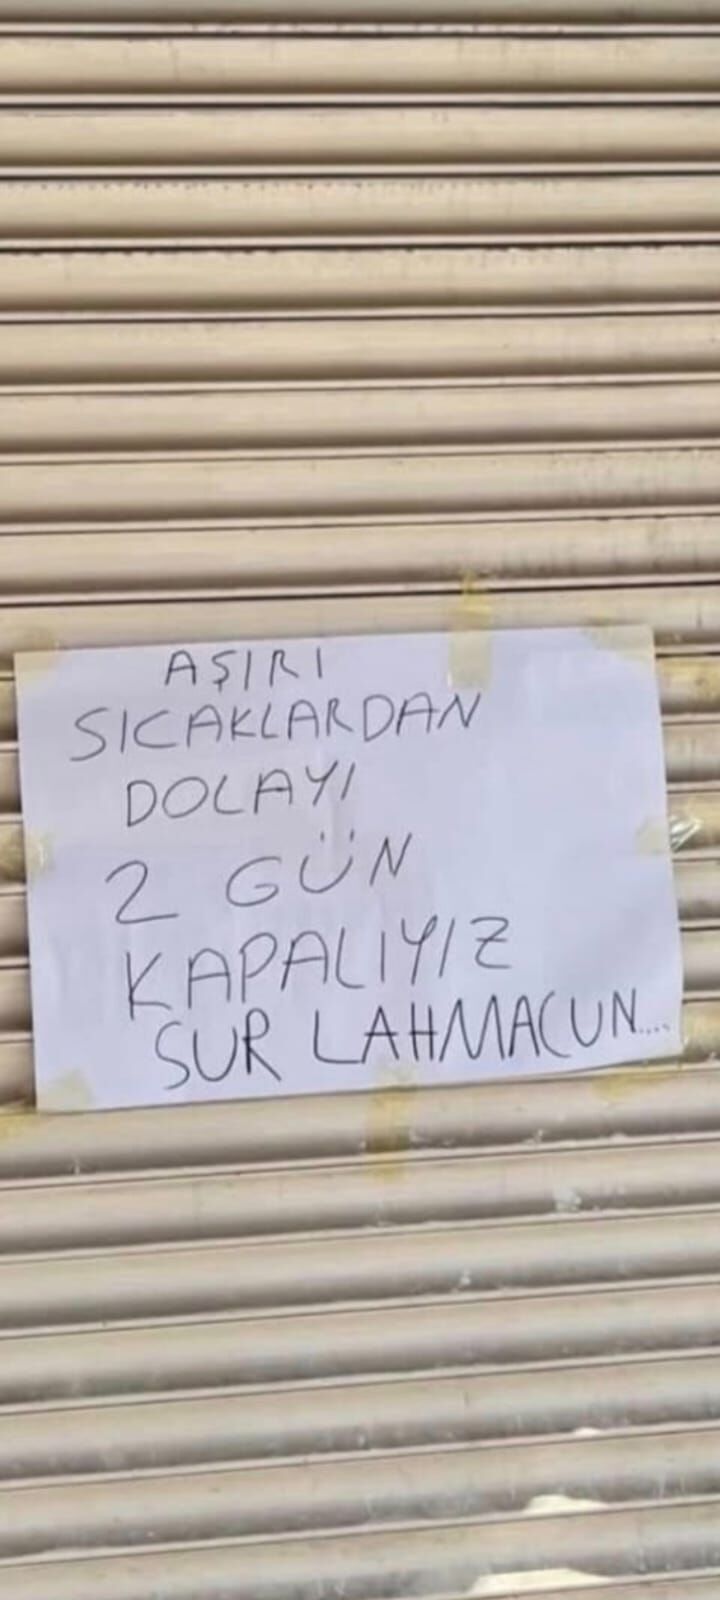 AŞIRI
SICAKLARDAN
DOLAYI
2 GÜN
KAPALIYIZ
SUR LAHMACUN....